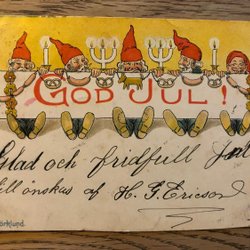 GOD JUL!
Glad och fridfull Jul
tillönskas af H. F. Ericson